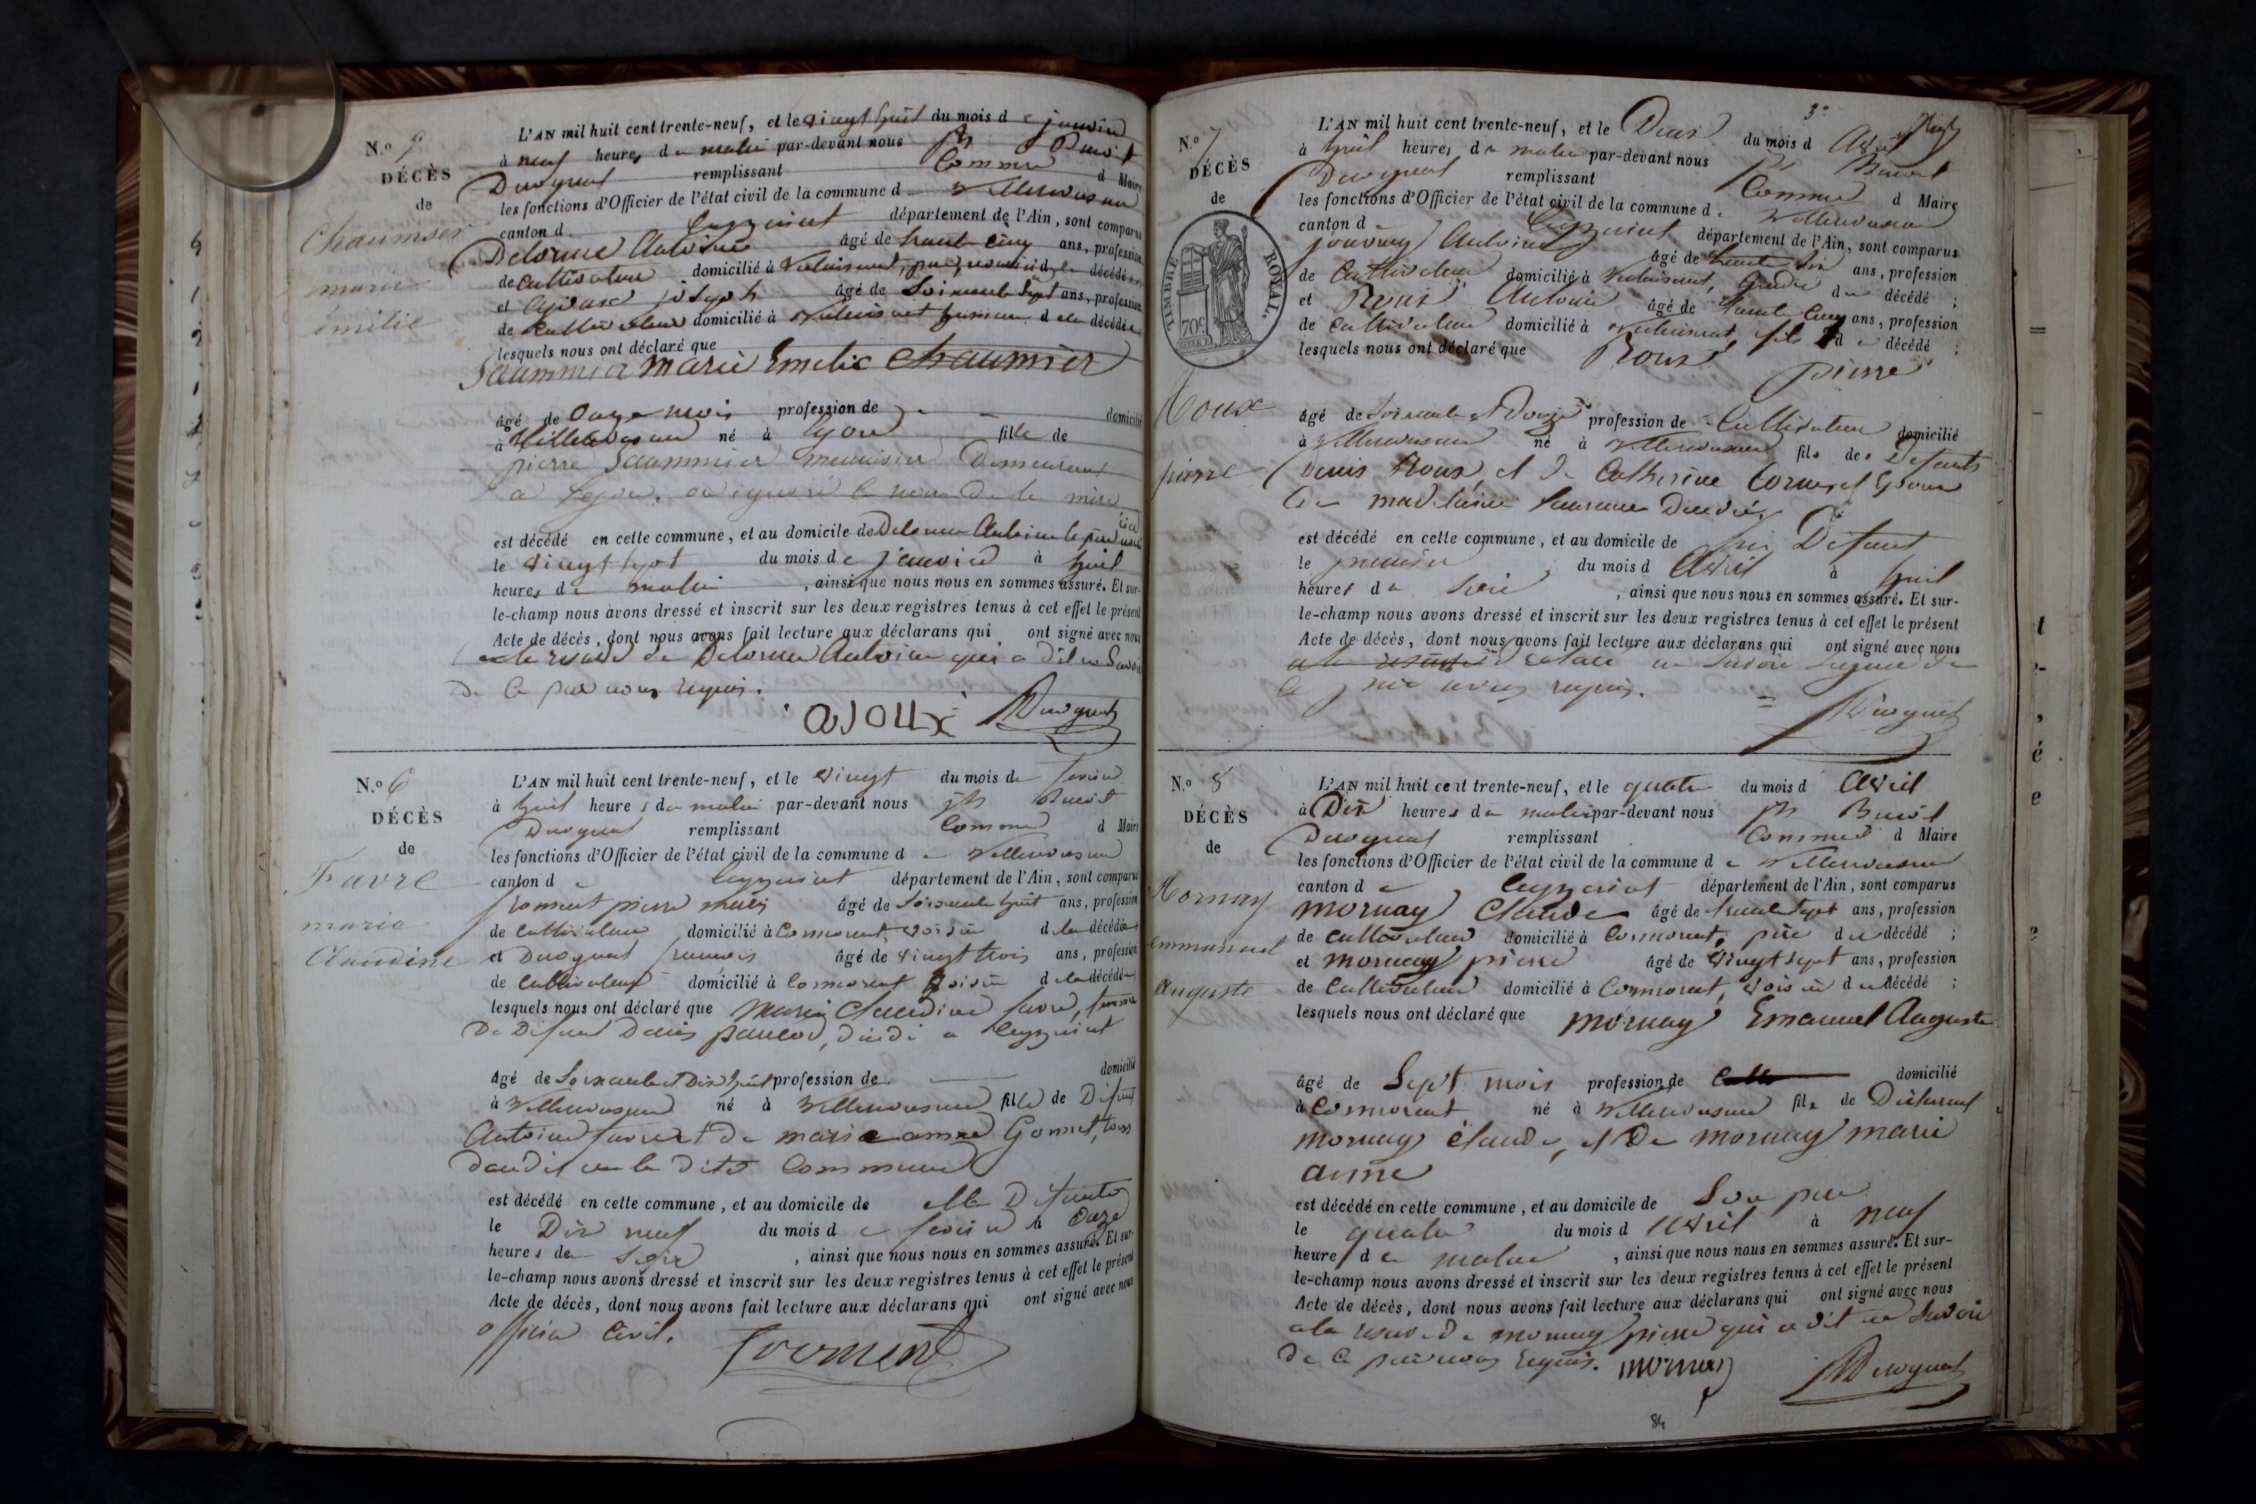 N.o 5
DÉCÈS
de
Chaumier
marie
émilie
L'AN mil huit cent trente-neuf, et le vingt huit du mois de janvier
à neuf heures du matin par-devant nous jh Benoit
Duvoynat remplissant Comme d Maire
les fonctions d'Officier de l'état civil de la commune d Villereversure
canton d Ceyzeriat département de l'Ain, sont comparus
Delorme Antoine âgé de trente cinq ans, profession
de Cultivateur domicilié à père nouricié de la décédée
et joseph âgé de Soixante Sept ans, profession
de Cultivateur domicilié à de la décédée
lesquels nous ont déclaré que
Saummier marie Emelie chaumier
âgé de onze mois profession de domicilié
à Villereversure né à Lyon fille de
pierre Saummier menuisier Demeurant
a Lyon, on ignore le nom De la mère
est décédé en cette commune, et au domicile de Delorme Antoine le père nouricié
le vingt Sept du mois de janvier à huit
heures du matin, ainsi que nous nous en sommes assuré. Et sur-
le-champ nous avons dressé et inscrit sur les deux registres tenus à cet effet le présent
Acte de décès, dont nous avons fait lecture aux déclarans qui ont signé avec nous
a la réserve de Delorme Antoine qui a dit ne Savoir
de ce par nous requis.
ajoux Duvoynat
N.o 6
DÉCÈS
de
Favre
marie
Claudine
L'AN mil huit cent trente-neuf, et le vingt du mois de fevrier
à huit heures du matin par-devant nous jh Benoit
Duvoynat remplissant Comme d Maire
les fonctions d'Officier de l'état civil de la commune de Villereversure
canton de Ceyzeriat département de l'Ain, sont comparus
froment pierre marie âgé de Soixante huit ans, profession
de Cultivateur domicilié à Cormorent, voisin de la décédée
et Duvoynat francois âgé de vingt trois ans, profession
de Cultivateur domicilié à Cormorent voisin de la décédée
lesquels nous ont déclaré que Marie Claudine favre, femme
De Defunt Denis, décédé a Ceyzeriat
âgé de Soixante et Dix huit profession de domicilié
à Villereversure né à Villereversure fille de Défunt
Antoine favre et de marie anne Gonnet, tous
décédés en la dite Commune
est décédé en cette commune, et au domicile de elle Defunte
le Dix neuf du mois de fevrier à onze
heures de Soir, ainsi que nous nous en sommes assuré. Et sur-
le-champ nous avons dressé et inscrit sur les deux registres tenus à cet effet le présent
Acte de décès, dont nous avons fait lecture aux déclarans qui ont signé avec nous
officier Civil. froment
N.o 7
DÉCÈS
de
TIMBRE ROYAL
70c
Roux
pierre
L'AN mil huit cent trente-neuf, et le Deux du mois d Avril
à huit heures du matin par-devant nous jh Benoit
Duvoynat remplissant Comme d Maire
les fonctions d'Officier de l'état civil de la commune de Villereversure
canton d Ceyzeriat département de l'Ain, sont comparus
Antoine âgé de trente six ans, profession
de Cultivateur domicilié à Gendre du décédé;
et Roux Antoine âgé de trente cinq ans, profession
de Cultivateur domicilié à fils du décédé;
lesquels nous ont déclaré que Roux
pierre
âgé de Soixante et Douze profession de Cultivateur domicilié
à Villereversure né à Villereversure fils des Défunts
Denis Roux, et de Catherine Cornet Epoux
de madelaine Laurence Décédée
est décédé en cette commune, et au domicile de lui Défunt
le premier du mois d Avril à huit
heures du Soir, ainsi que nous nous en sommes assuré. Et sur-
le-champ nous avons dressé et inscrit sur les deux registres tenus à cet effet le présent
Acte de décès, dont nous avons fait lecture aux déclarans qui ont signé avec nous
ne Savoir Signer de
ce par nous requis.
Duvoynat
N.o 8
DÉCÈS
de
Mornay
emmanuel
auguste
L'AN mil huit cent trente-neuf, et le quatre du mois d Avril
à Dix heures du matin par-devant nous jh Benoit
Duvoynat remplissant Comme d Maire
les fonctions d'Officier de l'état civil de la commune de Villereversure
canton de Ceyzeriat département de l'Ain, sont comparus
mornay Claude âgé de trente Sept ans, profession
de cultivateur domicilié à Cormorent, père du décédé;
et mornay pierre âgé de vingt Sept ans, profession
de Cultivateur domicilié à Cormorent, voisin du décédé;
lesquels nous ont déclaré que mornay Emanuel Auguste
âgé de Sept mois profession de domicilié
à Cormorent né à Villereversure fils de Déclarant
mornay Claude, et De mornay marie
anne
est décédé en cette commune, et au domicile de Son père
le quatre du mois d Avril à neuf
heure du matin, ainsi que nous nous en sommes assuré. Et sur-
le-champ nous avons dressé et inscrit sur les deux registres tenus à cet effet le présent
Acte de décès, dont nous avons fait lecture aux déclarans qui ont signé avec nous
a la réserve de mornay pierre qui a dit ne Savoir
de ce par nous requis. mornay Duvoynat
84